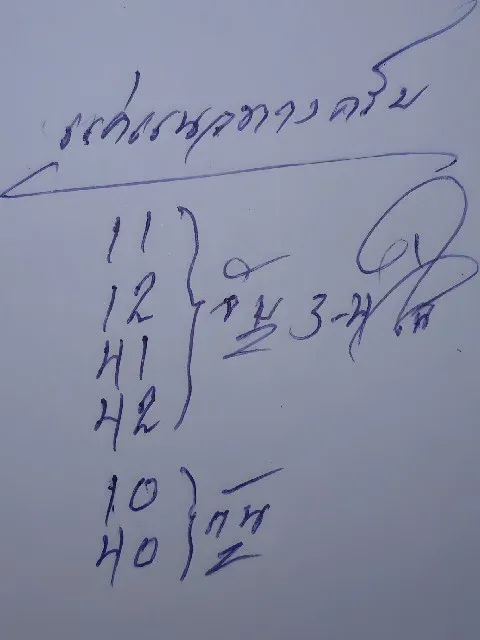 แค่แนวทางครับ
11
12
41
42
3-4
10
40
กัน